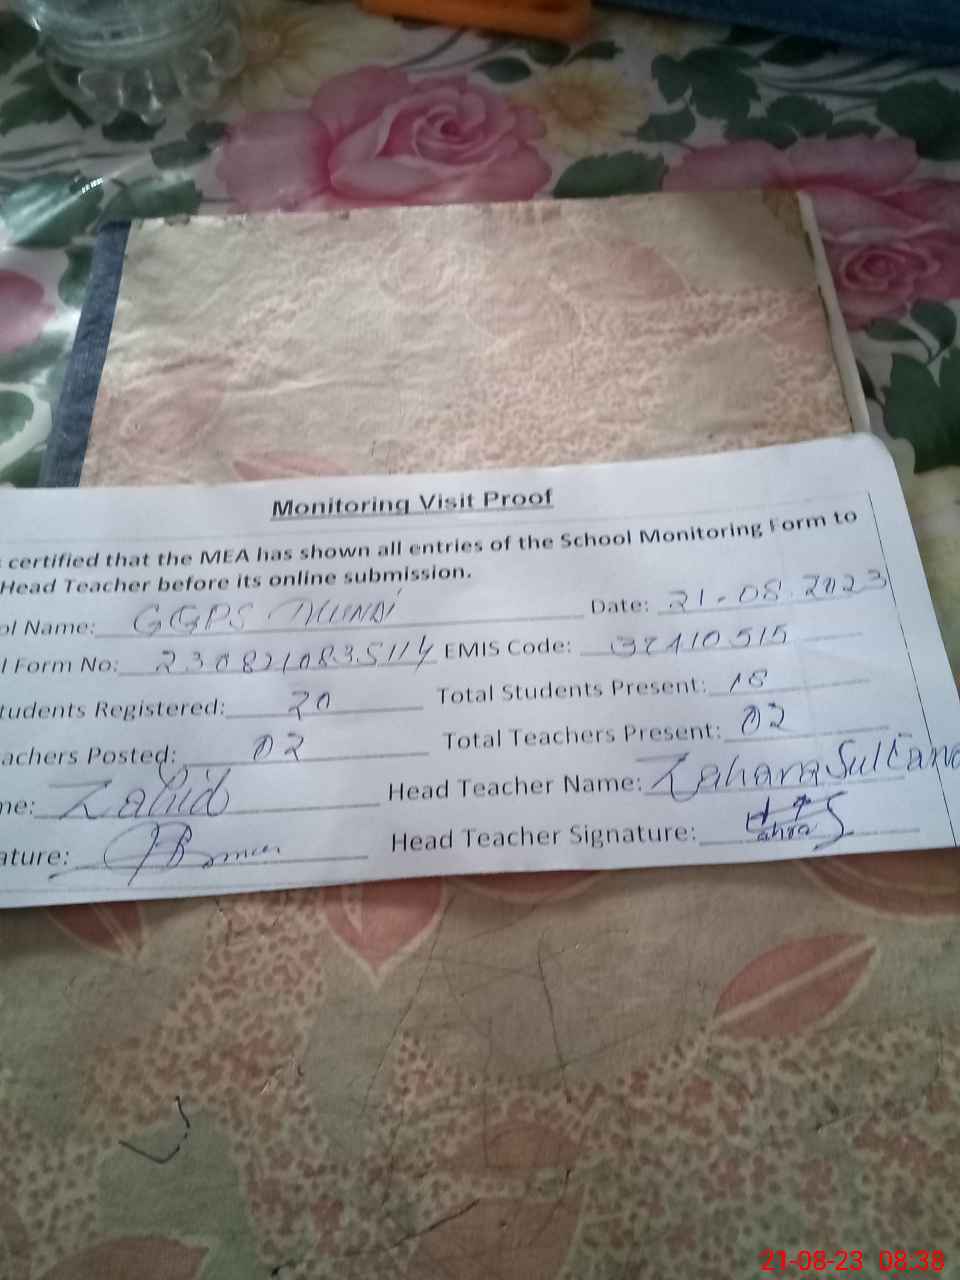 Monitoring Visit Proof
certified that the MEA has shown all entries of the School Monitoring Form to
Head Teacher before its online submission.
ol Name: GGPS Date: 21.08.2023
l Form No: 2308210835114 EMIS Code: 37410515
tudents Registered: 20 Total Students Present: 18
achers Posted: 02 Total Teachers Present: 02
me: Zahid Head Teacher Name: Zahara Sultana
ature: Head Teacher Signature:
21-08-23 08:38